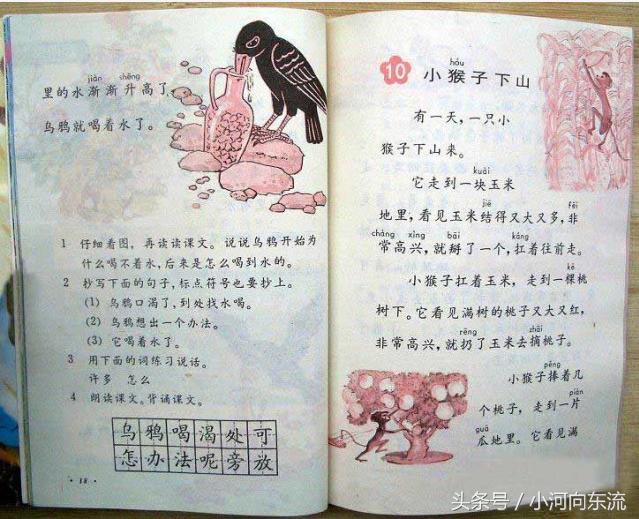 jiàn shēng
里的水渐渐升高了，
乌鸦就喝着水了。
1 仔细看图，再读读课文。说说乌鸦开始为
什么喝不着水，后来是怎么喝到水的。
2 抄写下面的句子，标点符号也要抄上。
(1) 乌鸦口渴了，到处找水喝。
(2) 乌鸦想出一个办法。
(3) 它喝着水了。
3 用下面的词练习说话。
许多 怎么
4 朗读课文。背诵课文。
乌鸦喝渴处可
怎办法呢旁放
· 18 ·
hóu
10 小猴子下山
有一天，一只小
猴子下山来。
kuài
它走到一块玉米
jiē fēi
地里，看见玉米结得又大又多，非
cháng xìng bāi káng
常高兴，就掰了一个，扛着往前走。
kē
小猴子扛着玉米，走到一棵桃
树下。它看见满树的桃子又大又红，
rēng zhāi
非常高兴，就扔了玉米去摘桃子。
pěng
小猴子捧着几
piàn
个桃子，走到一片
guā
瓜地里。它看见满
头条号／小河向东流